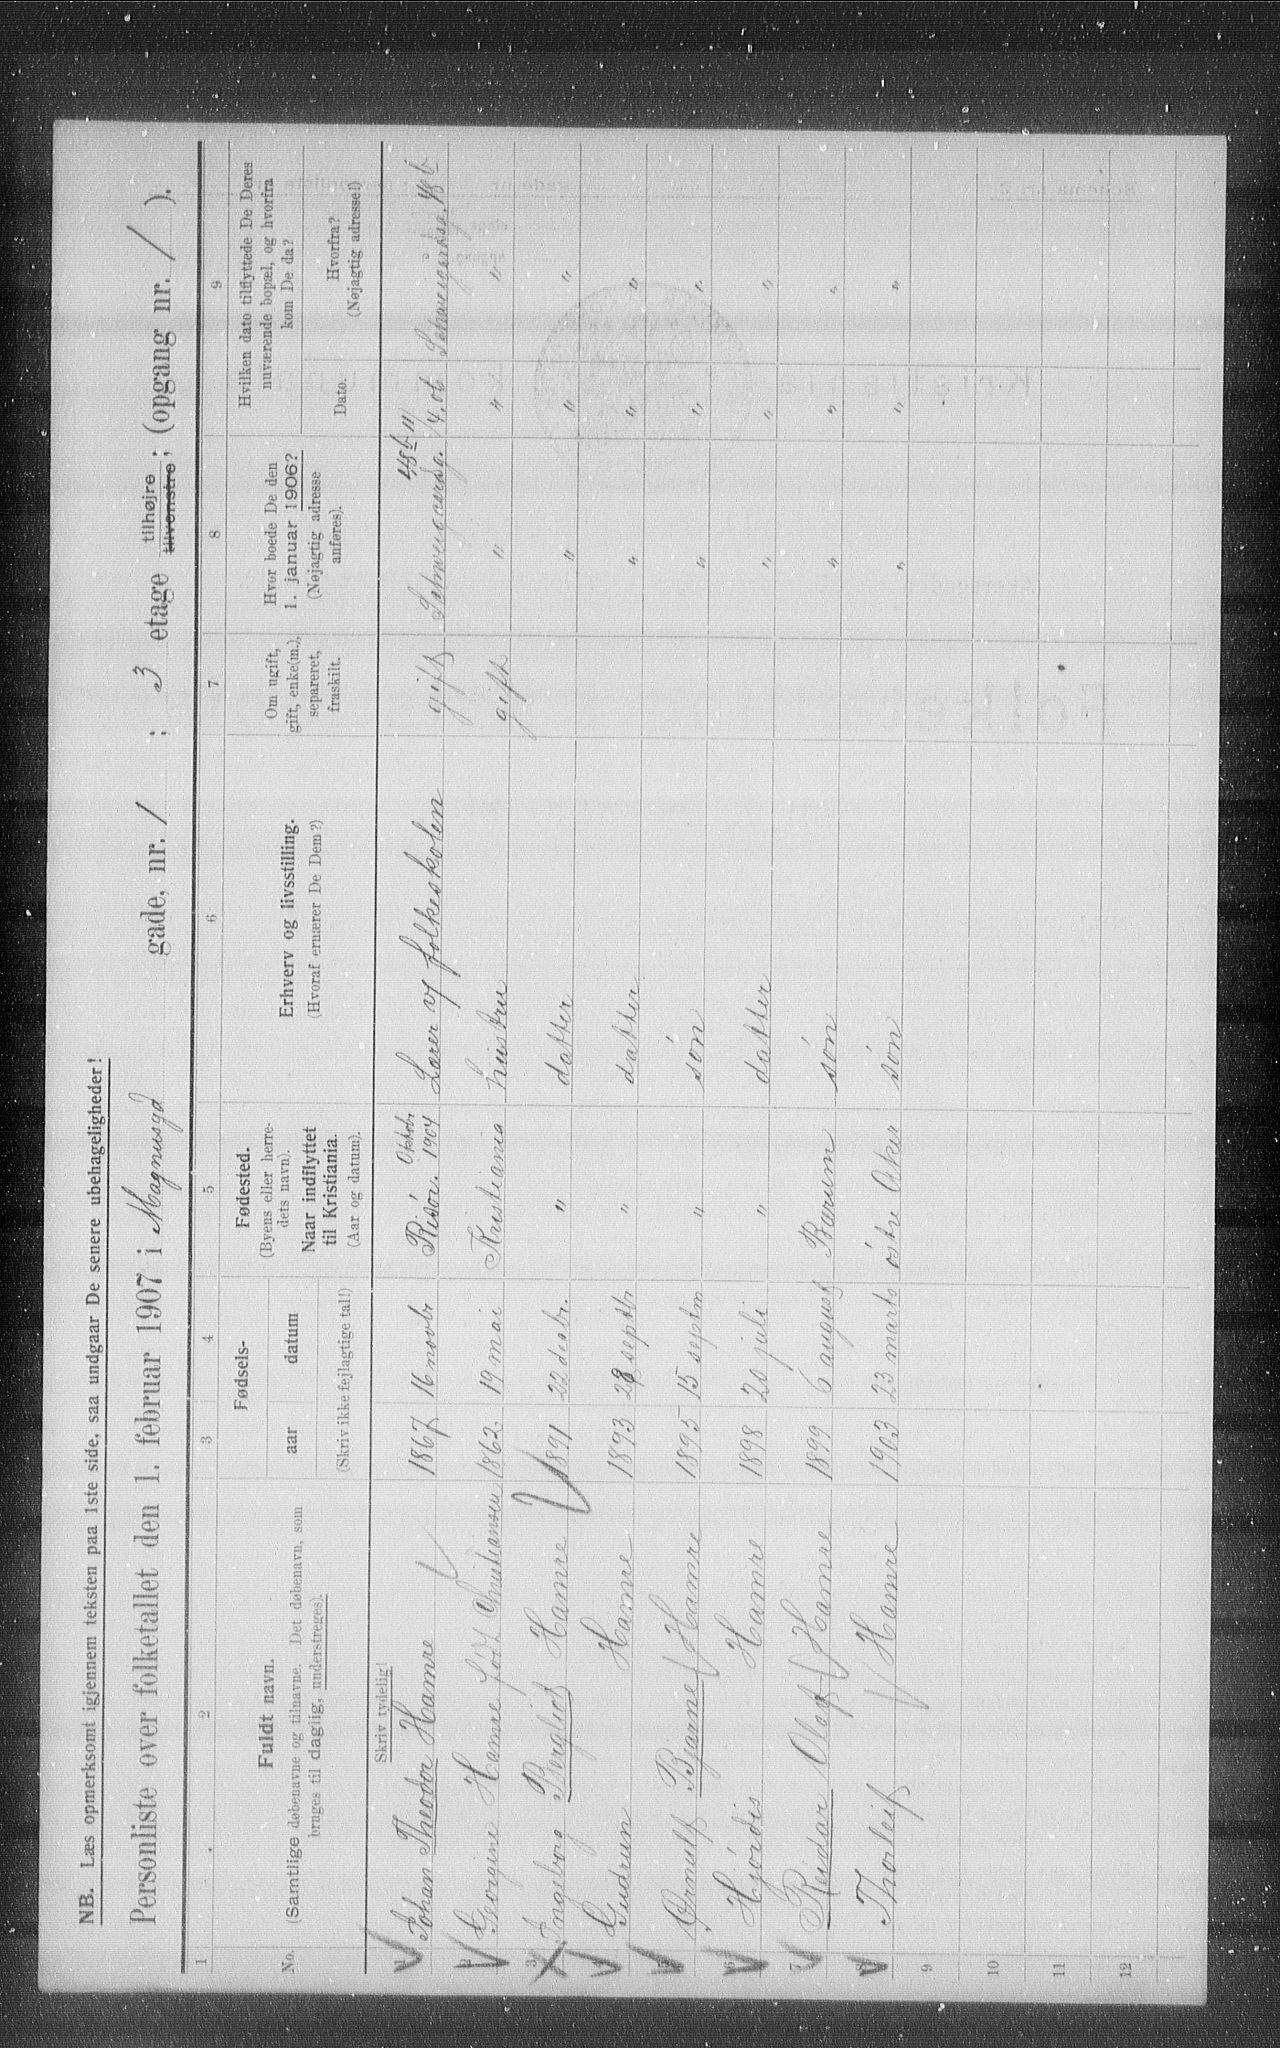 NB. Læs opmerksomt igjennem teksten paa 1ste side, saa undgaar De senere ubehageligheder!
Personliste over folketallet den 1. februar 1907 i Magnusgd gade, nr. 1 ; 3 etage tilhøjre tilvenstre ; (opgang nr. / ).
1 2 3 4 5 6 7 8 9
No.
Fuldt navn.
(Samtlige døbenavne og tilnavne. Det døbenavn, som
bruges til daglig, understreges).
Fødsels-
aar datum
(Skriv ikke fejlagtige tal!)
Fødested.
(Byens eller herre-
dets navn).
Naar indflyttet
til Kristiania.
(Aar og datum).
Erhverv og livsstilling.
(Hvoraf ernærer De Dem?)
Om ugift,
gift, enke(m.),
separeret,
fraskilt.
Hvor boede De den
1. januar 1906?
(Nøjagtig adresse
anføres).
Hvilken dato tilflyttede De Deres
nuværende bopæl, og hvorfra
kom De da?
Dato.
Hvorfra?
(Nøjagtig adresse!)
Skriv tydelig!
1 Johan Theodor Hamre 1867 16 novbr Risör. Oktobr. 1904 Lærer v/ folkeskolen gift
2 Georgine Hamre född Christiansen 1862 19 mai Kristiania hustru gift " " "
3 Ingeborg Bergliot Hamre 1891 22 desbr. " datter " " "
4 Gudrun Hamre 1893 28 septbr " datter " " "
5 Ørnulf Bjarne Hamre 1895 15 septm " sön " " "
6 Hjördis Hamre 1898 20 juli " datter " " "
7 Reidar Olaf Hamre 1899 6 august Bærum sön " " "
8 Thorleif Hamre 1903 23 marts östre Aker sön " " "
9
10
11
12